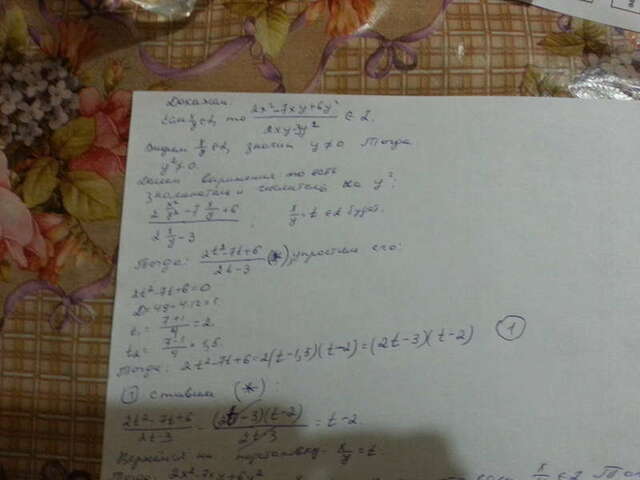 Докажем.
Если x/y ∈ Z, то (2x²-7xy+6y²)/(2xy-3y²) ∈ Z.
x/y ∈ Z, значит y≠0 Тогда
y²≠0.
Делим выражение то есть
знаменатель и числитель на y²:
(2 x²/y² - 7 x/y + 6)/(2 x/y - 3) ; x/y = t ∈ Z будет.
Тогда: (2t²-7t+6)/(2t-3) (*), упростим его:
2t²-7t+6=0
D=49-4·12=1.
t₁= (7+1)/4 = 2
t₂= (7-1)/4 = 1,5.
Тогда: 2t²-7t+6=2(t-1,5)(t-2)=(2t-3)(t-2) ①
① ставим (*) :
(2t²-7t+6)/(2t-3) = (2t-3)(t-2)/(2t-3) = t-2
Вернемся на x/y = t.
2x²-7xy+6y² x/y ∈ Z